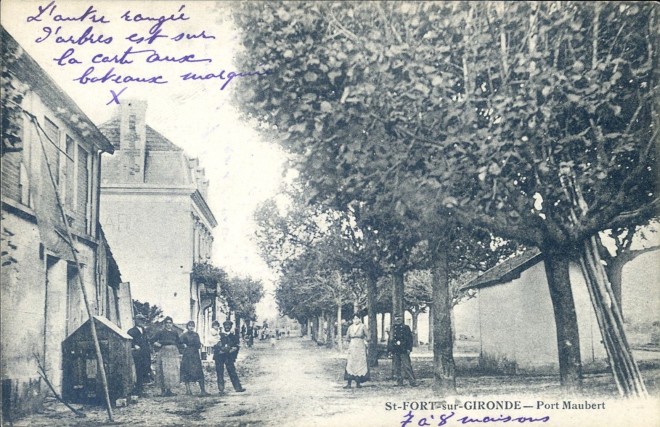 L'autre rangée
d'arbres est sur
la carte aux
bateaux
X
St-FORT-sur-GIRONDE — Port Maubert
7 à 8 maisons